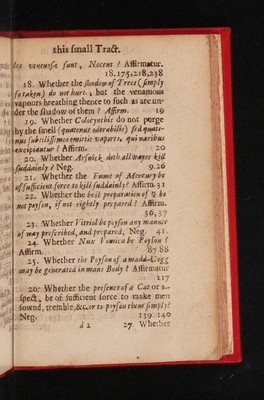 this small Tract.
lex venenosæ sunt, Nocent ? Affirmatur.
18.175,218,238
18. Whether the shadow of Trees (simply
so taken) do not hurt, but the venamous
vapours breathing thence to such as are un-
der the shadow of them ? Affirm. 19
19. Whether Colocynthis do not purge
by the smell (quatenus odorabilis) sed quate-
nus subtilissimo emissis vaporis, qui naribus
excipiantur ? Affirm. 20
20. Whether Arsnick doth allwayes kill
suddainly ? Neg. 9.26
21. Whether the Fume of Mercury be
of sufficient force to kill suddainly? Affirm. 31
22. Whether the best preparation of ☿ be
not poyson, if not rightly prepared ? Affirm.
36,37
23. Whether Vitriol be poyson any manner
of way prescribed, and prepared, Neg. 41.
24. Whether Nux Vomica be Poyson ?
Affirm. 87 88
25. Whether the Poyson of a madd-Dogg
may be generated in mans Body ? Affirmatur
117
26. Whether the presence of a Cat or a-
spect, be of sufficient force to make men
sownd, tremble, &c. or to poyson them simply?
Neg. 139 140
d 2 27. Whether